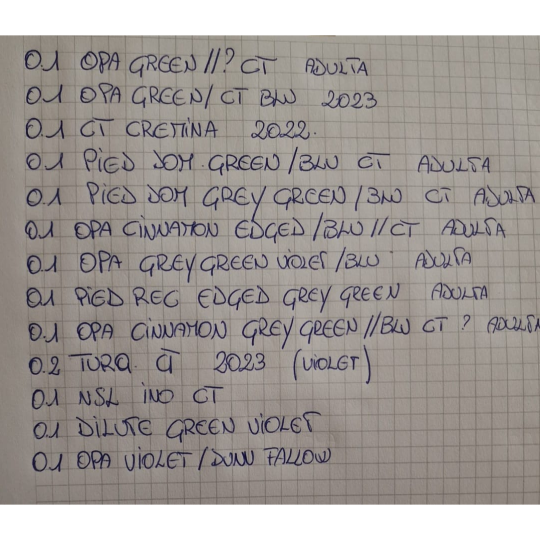 0.1 OPA GREEN//? CT ADULTA
0.1 OPA GREEN/CT BLU 2023
0.1 CT CREMINA 2022.
0.1 PIED DOM GREEN/BLU CT ADULTA
0.1 PIED DOM GREY GREEN/BLU CT ADULTA
0.1 OPA CINNAMON EDGED/BLU//CT ADULTA
0.1 OPA GREYGREEN VIOLET/BLU ADULTA
0.1 PIED REC EDGED GREY GREEN ADULTA
0.1 OPA CINNAMON GREY GREEN//BLU CT? ADULTA
0.2 TURQ. CT 2023 (VIOLET)
0.1 NSL INO CT
0.1 DILUTE GREEN VIOLET
0.1 OPA VIOLET/DUNN FALLOW